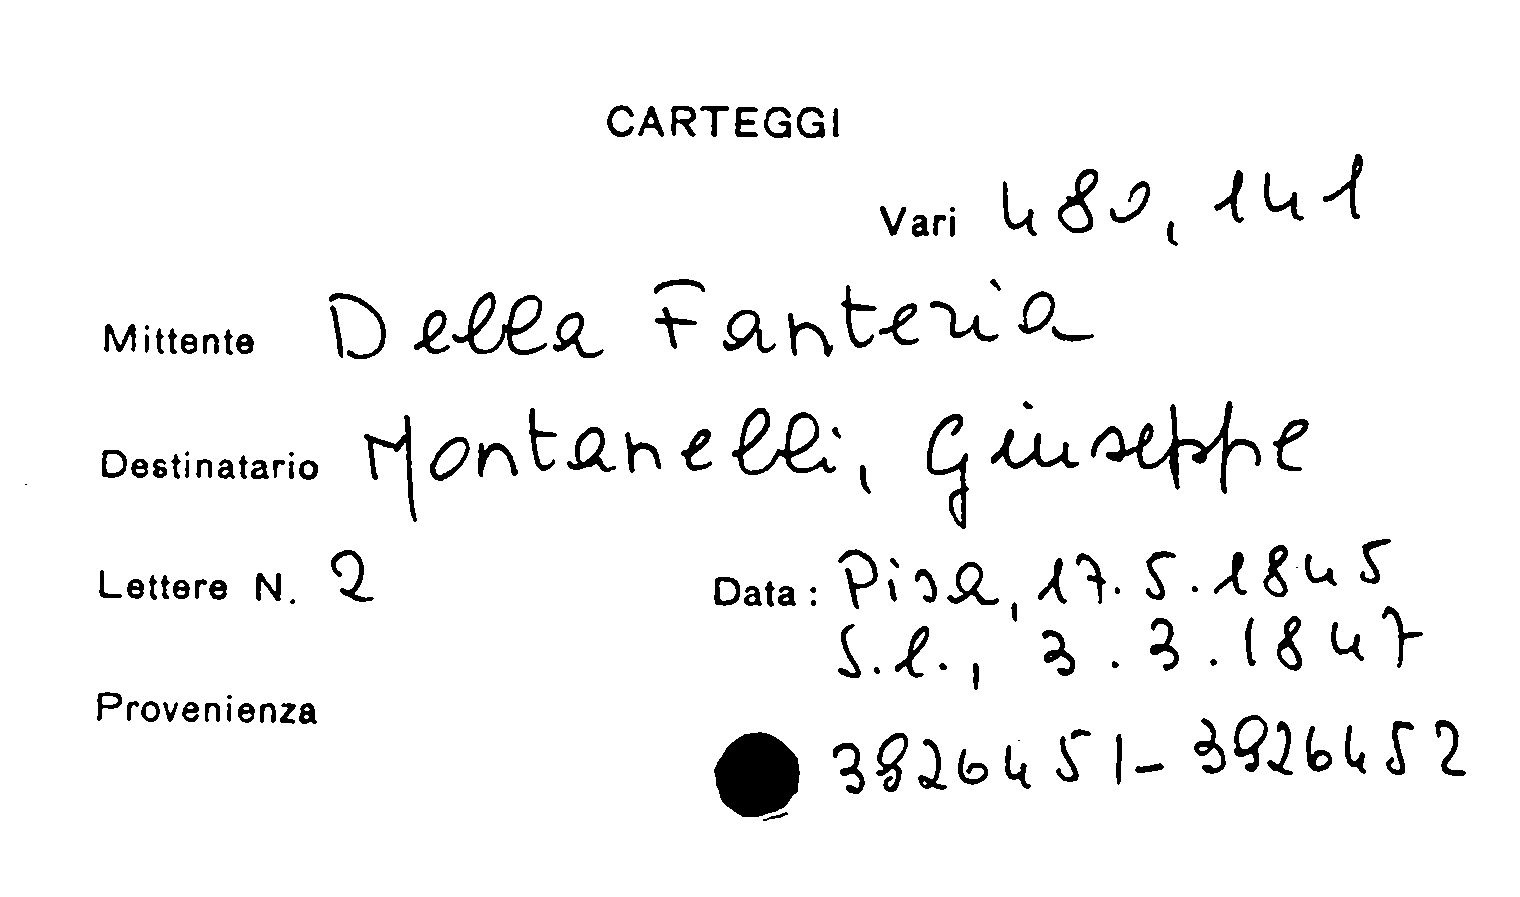 CARTEGGI
Vari 480, 141
Mittente Della Fanteria
Destinatario Montanelli, Giuseppe
Lettere N. 2 Data: Pisa, 17.5.1845
S.l., 3.3.1847
Provenienza
3926451-3926452